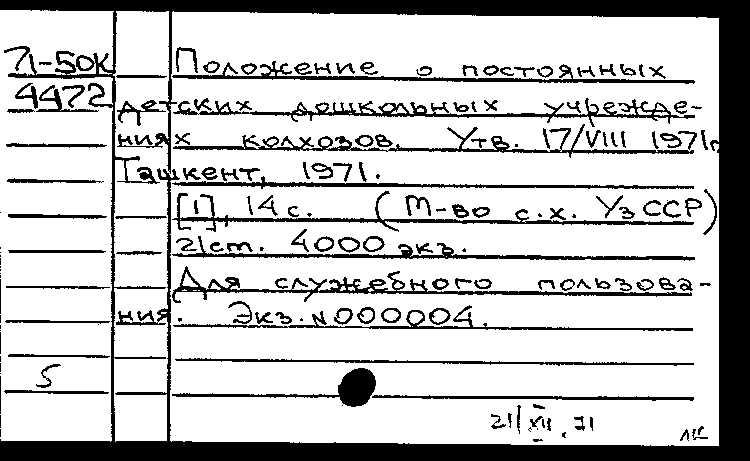 71-50К Положение о постоянных
4472 детских дошкольных учрежде-
ниях колхозов. Утв. 17/VIII 1971г.
Ташкент, 1971.
[1], 14 с. (М-во с.х. УзССР)
21 см. 4000 экз.
Для служебного пользова-
ния. Экз. N000004.
5
21/XII.71